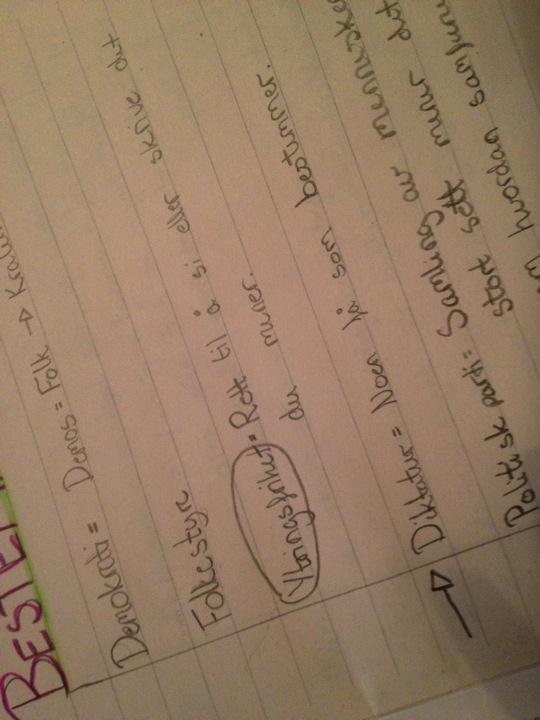 BESTE
Demokrati = Demos = Folk →
Folkestyre
Ytringsfrihet = Rett til å si eller skrive det
du mener.
Diktatur = Noen få som bestemmer.
Politisk parti = Samling av mennesker
stort sett mener det
hvordan